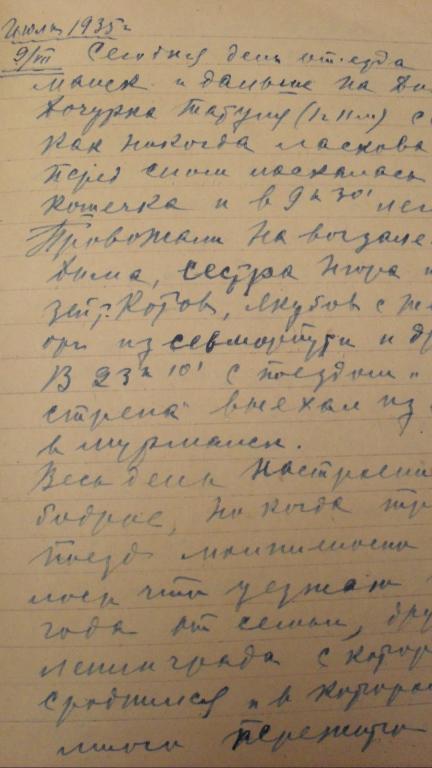 Июль 1935 г
9/VII Сегодня день отъезда
манск и дальше на Ди
Дочурка Татуля (1 г 11 м) с
как никогда ласкова
перед сном ласкалась
кошечка и в 9 ч 30'
Провожали на вокзале
Дима, сестра Нюра и
Котов, Якубов с же
орг из севморпути и др
В 23 ч 10' с поездом "
стрела" выехал из
в Мурманск.
Весь день настроени
бодрое, но когда тр
поезд
лось что уезжаю
года от семьи, дру
Ленинграда с котор
сроднился и в которо
много пережито